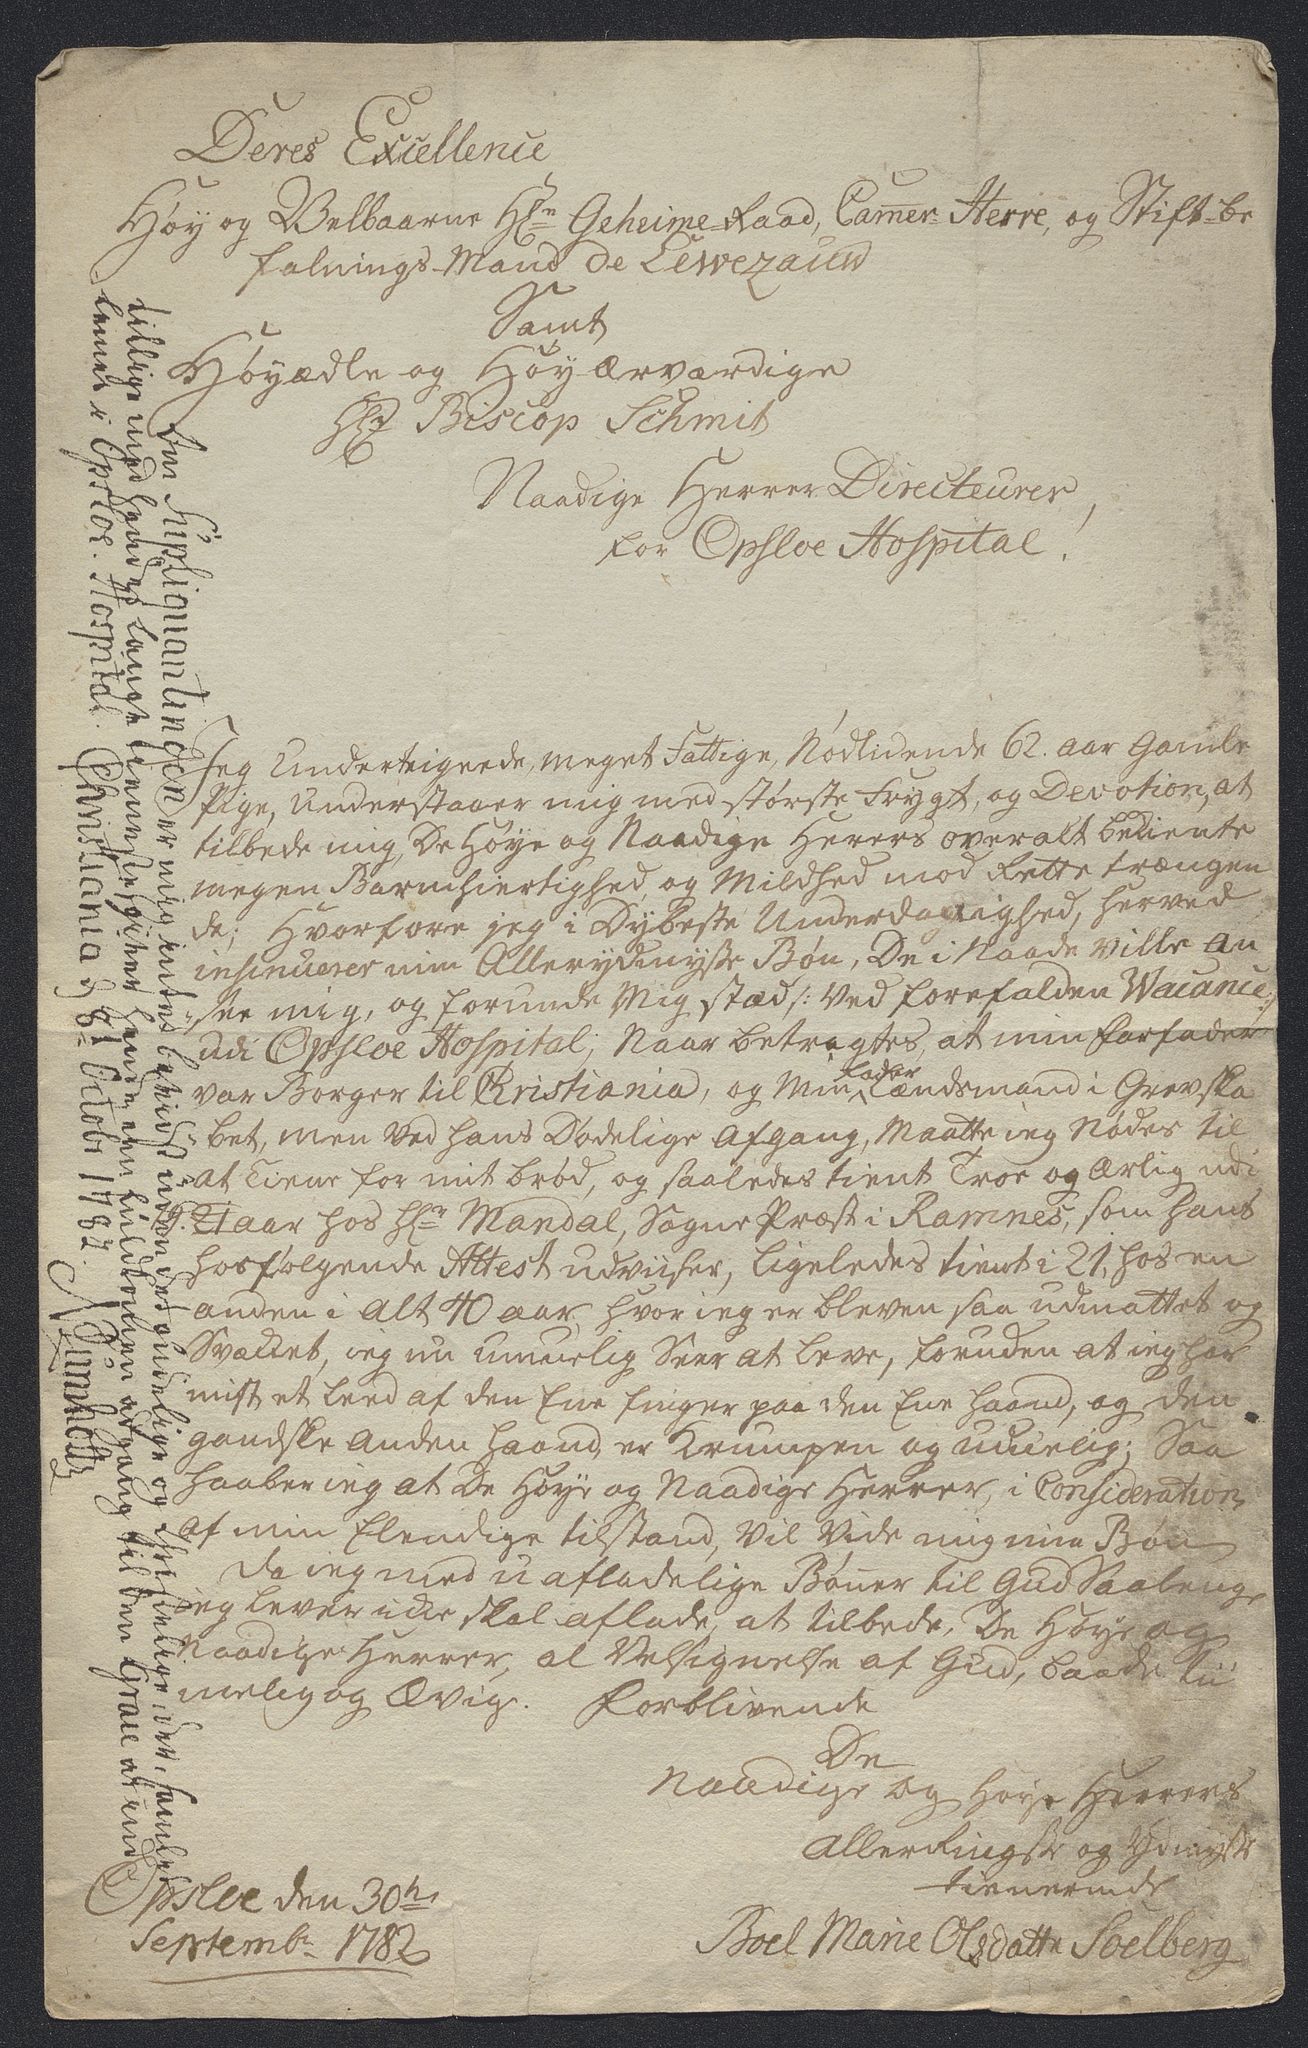 Deres Excellence
Høy og Velbaarne Hr Geheime-Raad, Camer-Herre, og Stift-be
falnings-Mand de Lewezauw
Samt
Høyædle og Høyærværdige
Hr Biscop Schmit
Naadige Herrer Directeurer,
for Opsloe Hospital!
Jeg Underteignede, meget Fattige, Nødlidende 62. aar Gamle
Pige, Understaaer mig med største Frygt, og Devotion, at
tilbede mig, De Høye og Naadige Herrers overalt bekiente
megen Barmhiertighed, og Mildhed mod Rette trængen
de; Hvorfore jeg i Dybeste Underdanighed, herved
insinuerer min Allerydmyste Bøn, De i Naade ville an
see mig, og forunde Mig stæd /: Ved forefalden Wacance :/
udi Opsloe Hospital; Naar betragtes, at min Farfader
var Borger til Kristiania, og Min Fader Lændsmand i Grevska
bet, men Ved hans Dødelige Afgang, Maatte ieg Nødes til
at Tiene for mit brød, og saaledes tient Troe og Ærlig udi
19. aar hos Hr Mandal, Sogne Præst i Ramnes, som hans
hosfølgende Attest udviiser, ligeledes tient i 21, hos en
anden i alt 40 aar, hvor ieg er bleven saa udmattet og
Svækket, ieg nu umuelig Seer at leve, foruden at ieg har
mist et leed af den Ene finger paa den Ene haand, og den
gandske anden haand, er Krumpen og uduelig; Saa
haaber ieg at De Høye og Naadige Herrer, i Consideration,
af min Elendige tilstand, Vil Vide mig min Bøn
da ieg med uafladelige Bønner til Gud Saalenge
ieg lever icke skal aflade, at tilbede, De Høye og
Naadige Herrer, al Velsignelse af Gud, baade tii
melig og Ævig. Forblivende
De
Naadige og Høye Herrers
allerRingste og Ydmyste
tienerinde
Boel Marie Olsdatter Soelberg
Opsloe den 30te
Septembr 1782
Den Supliqvantinden er mig intet bekiendt uden det ahudelige og Christelige, det samler
tillige med hendes lange tieneste giver hende en fuldkommen adgang til den Grace at ind
lemes i Opsloe Hospital. Christiania d 8de Octobr 1782.